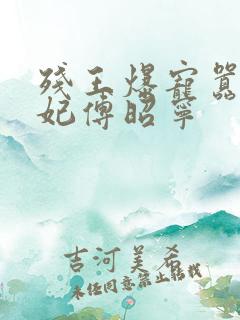 残王爆宠嚣
妃傅昭宁
吉河美希
未经同意禁止转载